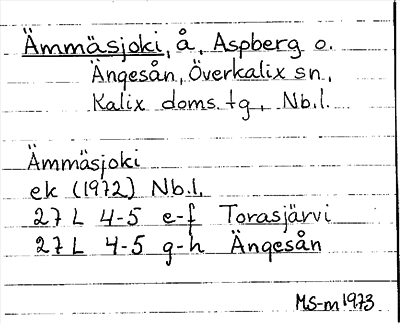 Ämmäsjoki, å, Aspberg o.
Ängesån, Överkalix sn,
Kalix doms. tg, Nb.l.
Ämmäsjoki
ek (1972) Nb.l.
27 L 4-5 e-f Torasjärvi
27 L 4-5 g-h Ängesån
MS-m 1973